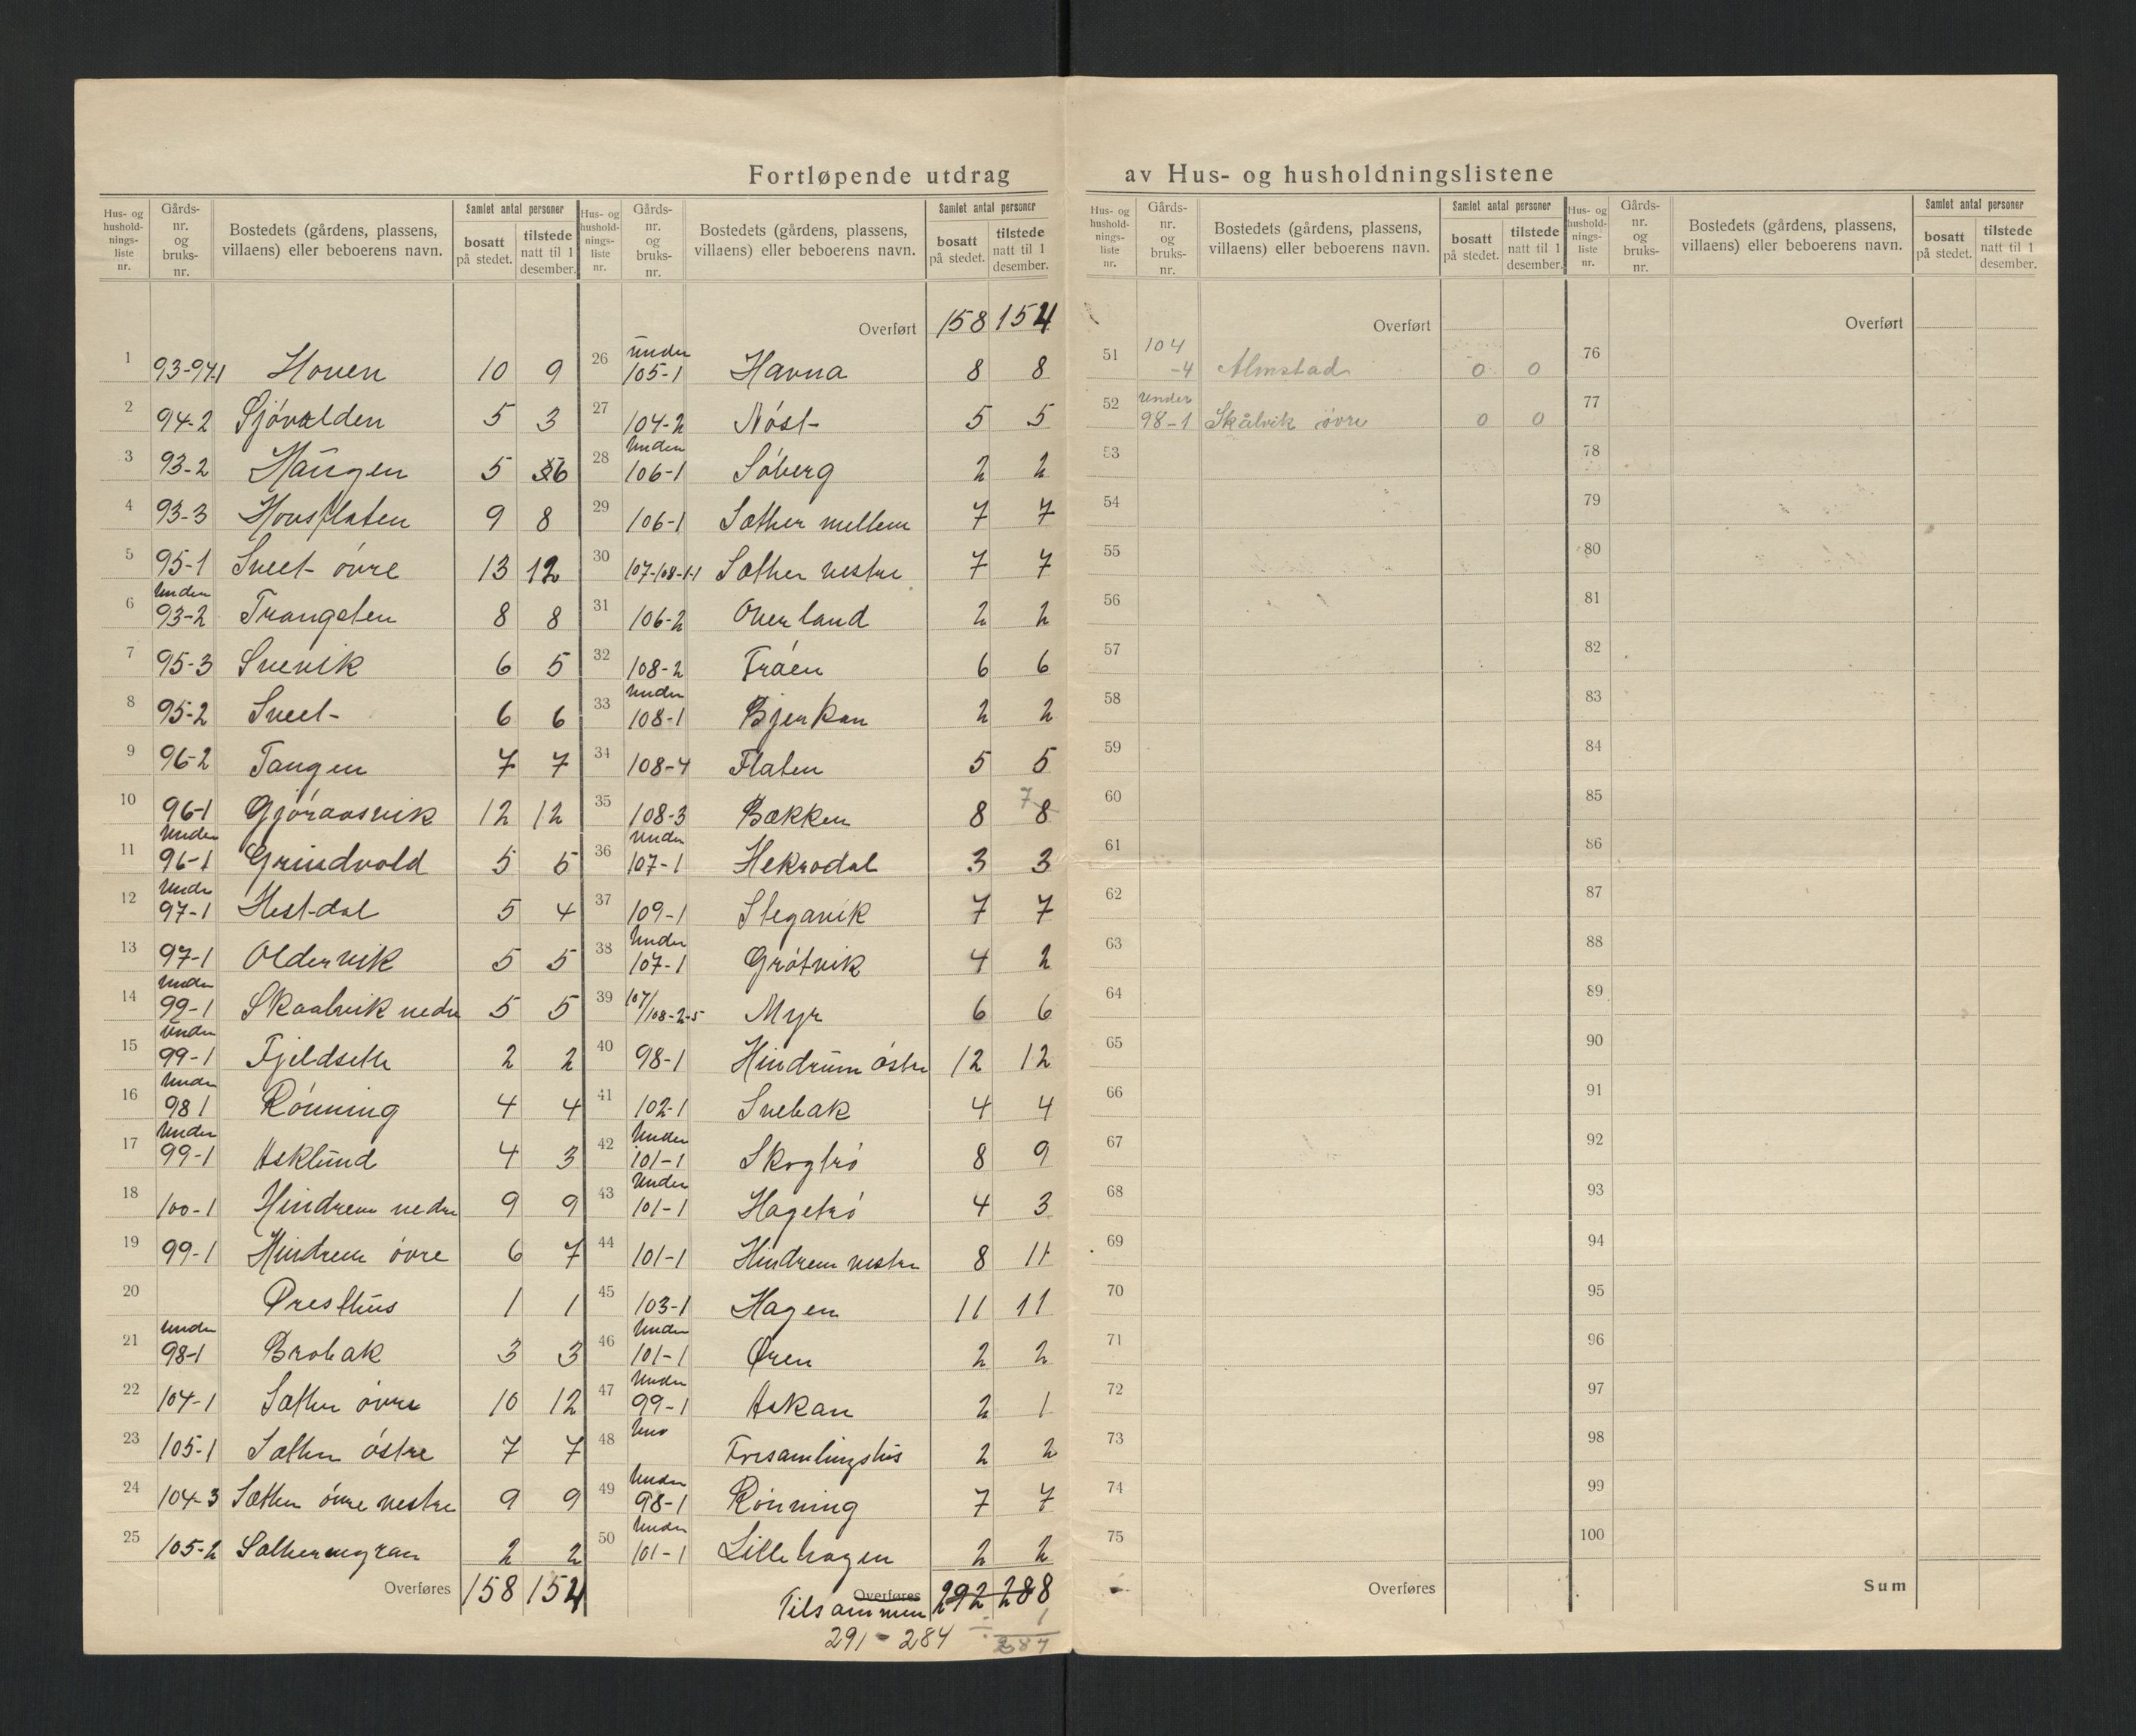 Fortløpende utdrag av Hus- og husholdningslistene
Hus- og hushold-nings-liste nr. Gårds-nr. og bruks-nr. Bostedets (gårdens, plassens, villaens) eller beboerens navn. Samlet antal personer bosatt på stedet. tilstede natt til 1 desember.
1 93-94-1 Hoven 10 9
2 94-2 Sjóvolden 5 3
3 93-2 Haugen 5 6
4 93-3 Hovsflaten 9 8
5 95-1 Sveet óvre 13 12
6 Under 93-2 Trangsten 8 8
7 95-3 Svevik 6 5
8 95-2 Sveet 6 6
9 96-2 Tangen 7 7
10 96-1 Gjóraasvik 12 12
11 Under 96-1 Grindvold 5 5
12 Under 97-1 Hestdal 5 4
13 97-1 Oldervik 5 5
14 Under 99-1 Skaalvik nedre 5 5
15 Under 99-1 Fjeldseth 2 2
16 Under 98 1 Rónning 4 4
17 Under 99-1 Asklund 4 3
18 100-1 Hindrem nedre 9 9
19 99-1 Hindrem óvre 6 7
20 Presthus 1 1
21 Under 98-1 Brobak 3 3
22 104-1 Sæther óvre 10 12
23 105-1 Sæther óstre 7 7
24 104-3 Sæther óvre vestre 9 9
25 105-2 2 2
Overføres 158 154
Hus- og hushold-nings-liste nr. Gårds-nr. og bruks-nr. Bostedets (gårdens, plassens, villaens) eller beboerens navn. Samlet antal personer bosatt på stedet. tilstede natt til 1 desember.
Overført 158 154
26 Under 105-1 Havna 8 8
27 104-2 Nóst 5 5
28 Under 106-1 Sóberg 2 2
29 106-1 Sæther mellem 7 7
30 107-108-1-1 Sæther vestre 7 7
31 106-2 Overland 2 2
32 108-2 Tróen 6 6
33 Under 108-1 Bjerkan 2 2
34 108-4 Flaten 5 5
35 108-3 Bækken 8 7 8
36 Under 107-1 Hekrodal 3 3
37 109-1 Slegavik 7 7
38 Under 107-1 Grótvik 4 2
39 107/108-2-5 Myr 6 6
40 98-1 Hindrum óstre 12 12
41 102-1 Svebak 4 4
42 Under 101-1 Skogtró 8 9
43 Under 101-1 Hagetró 4 3
44 101-1 Hindrem vestre 8 11
45 103-1 Hagen 11 11
46 Under 101-1 Øren 2 2
47 Under 99-1 Askan 2 1
48 Forsamlingshus 2 2
49 Under 98-1 Rónning 7 7
50 Under 101-1 Lillehagen 2 2
Overføres
Tilsammen 292 288
1
291 - 284 287
Hus- og hushold-nings-liste nr. Gårds-nr. og bruks-nr. Bostedets (gårdens, plassens, villaens) eller beboerens navn. Samlet antal personer bosatt på stedet. tilstede natt til 1 desember.
Overført
51 104-4 Almstad 0 0
52 Under 98-1 Skålvik øvre 0 0
53
54
55
56
57
58
59
60
61
62
63
64
65
66
67
68
69
70
71
72
73
74
75
Overføres
Hus- og hushold-nings-liste nr. Gårds-nr. og bruks-nr. Bostedets (gårdens, plassens, villaens) eller beboerens navn. Samlet antal personer bosatt på stedet. tilstede natt til 1 desember.
Overført
76
77
78
79
80
81
82
83
84
85
86
87
88
89
90
91
92
93
94
95
96
97
98
99
100
Sum